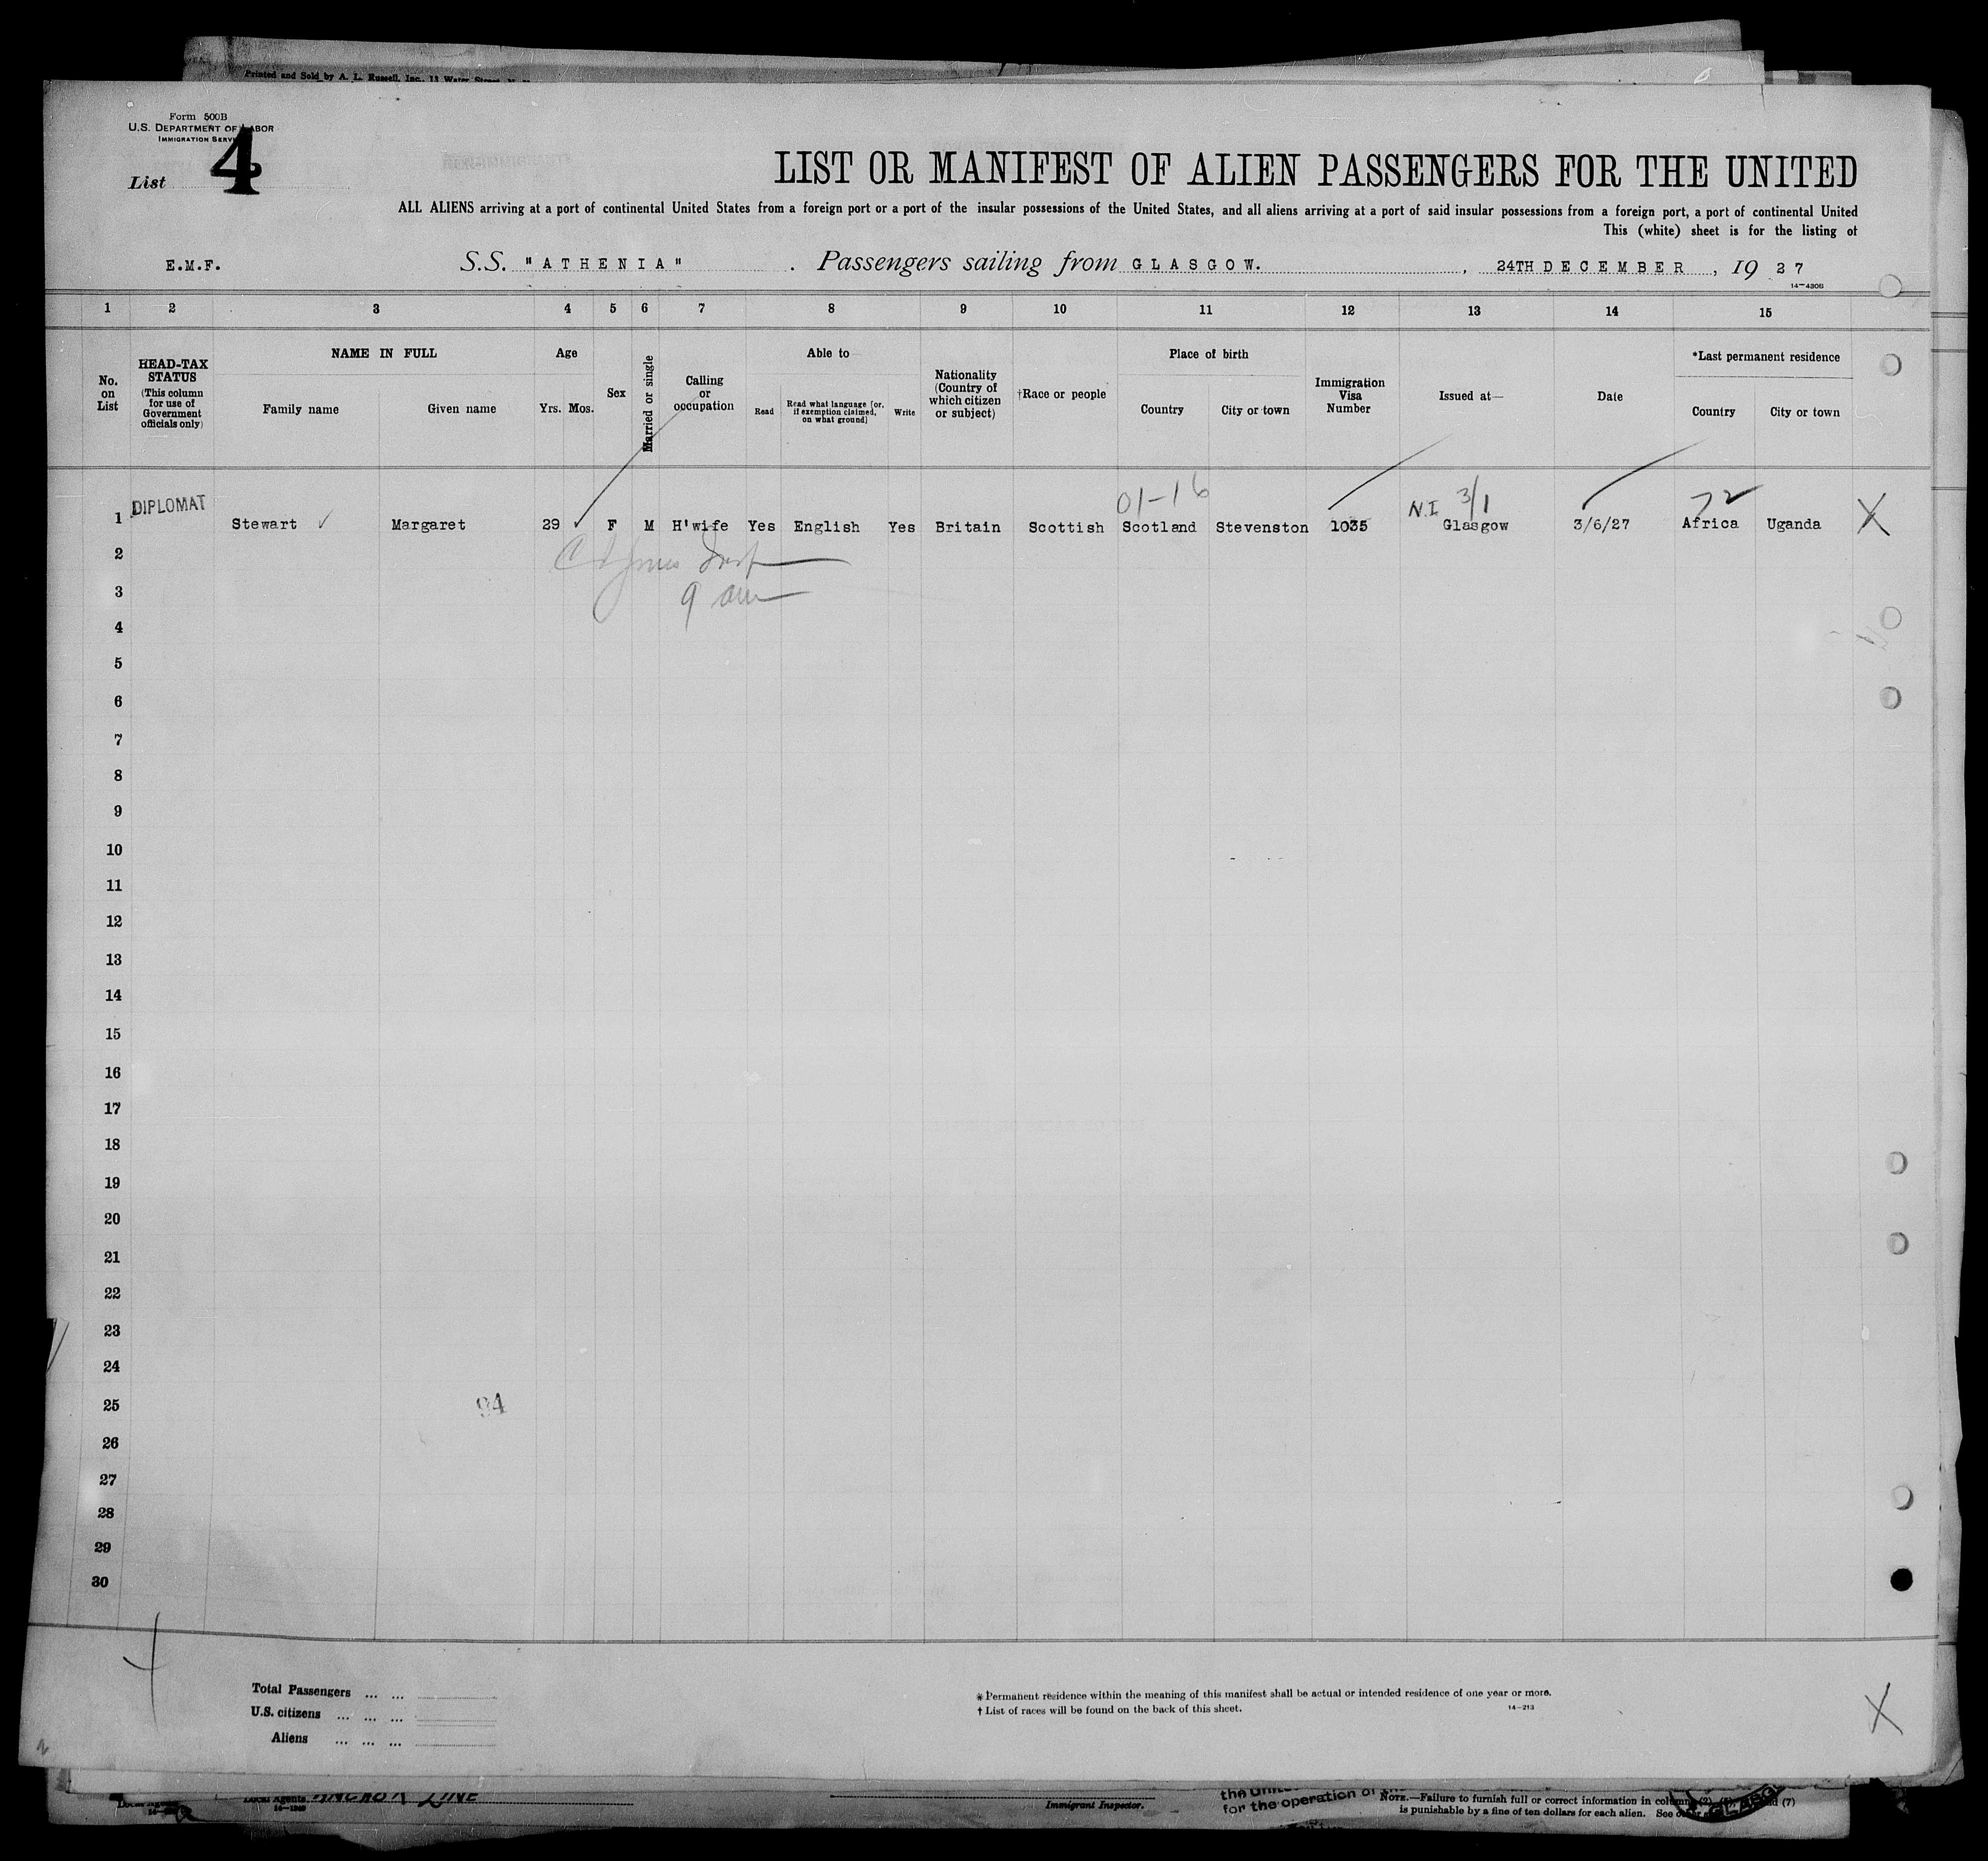 Printed and Sold by A. L. Russell, Inc., 13 Water Street,
Form 500B
U.S. DEPARTMENT OF LABOR
IMMIGRATION SERVICE
List 4
LIST OR MANIFEST OF ALIEN PASSENGERS FOR THE UNITED
ALL ALIENS arriving at a port of continental United States from a foreign port or a port of the insular possessions of the United States, and all aliens arriving at a port of said insular possessions from a foreign port, a port of continental United
This (white) sheet is for the listing of
E.M.F. S.S. "ATHENIA" . Passengers sailing from GLASGOW. , 24TH DECEMBER , 19 27
14—430B
1 2 3 4 5 6 7 8 9 10 11 12 13 14 15
No. on List
HEAD-TAX STATUS (This column for use of Government officials only)
NAME IN FULL
Family name Given name
Age
Yrs. Mos.
Sex
Married or single
Calling or occupation
Able to
Read
Read what language [or, if exemption claimed, on what ground]
Write
Nationality (Country of which citizen or subject)
†Race or people
Place of birth
Country City or town
Immigration Visa Number
Issued at—
Date
*Last permanent residence
Country City or town
01-16 N.I 3/1 72
1 DIPLOMAT Stewart ✓ Margaret 29 ✓ F M H'wife Yes English Yes Britain Scottish Scotland Stevenston 1035 Glasgow 3/6/27 Africa Uganda X
2
3 9 am
4
5
6
7
8
9
10
11
12
13
14
15
16
17
18
19
20
21
22
23
24
25 94
26
27
28
29
30
Total Passengers ... ...
U.S. citizens ... ... ...
Aliens ... ... ...
* Permanent residence within the meaning of this manifest shall be actual or intended residence of one year or more.
† List of races will be found on the back of this sheet.
14—213
X
Local Agents ANCHOR LINE
Immigrant Inspector.
for the operation of the
NOTE.—Failure to furnish full or correct information in columns
is punishable by a fine of ten dollars for each alien. See